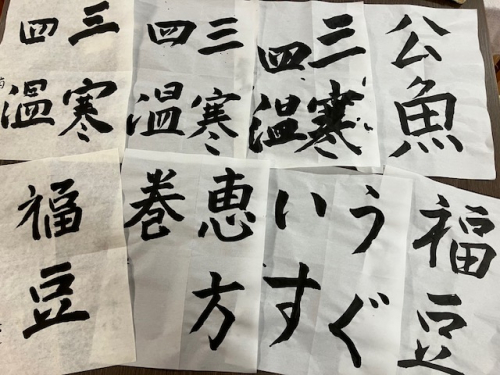 三寒
四温
三寒
四温
三寒
四温
公魚
福豆
恵方
巻
うぐ
いす
福豆